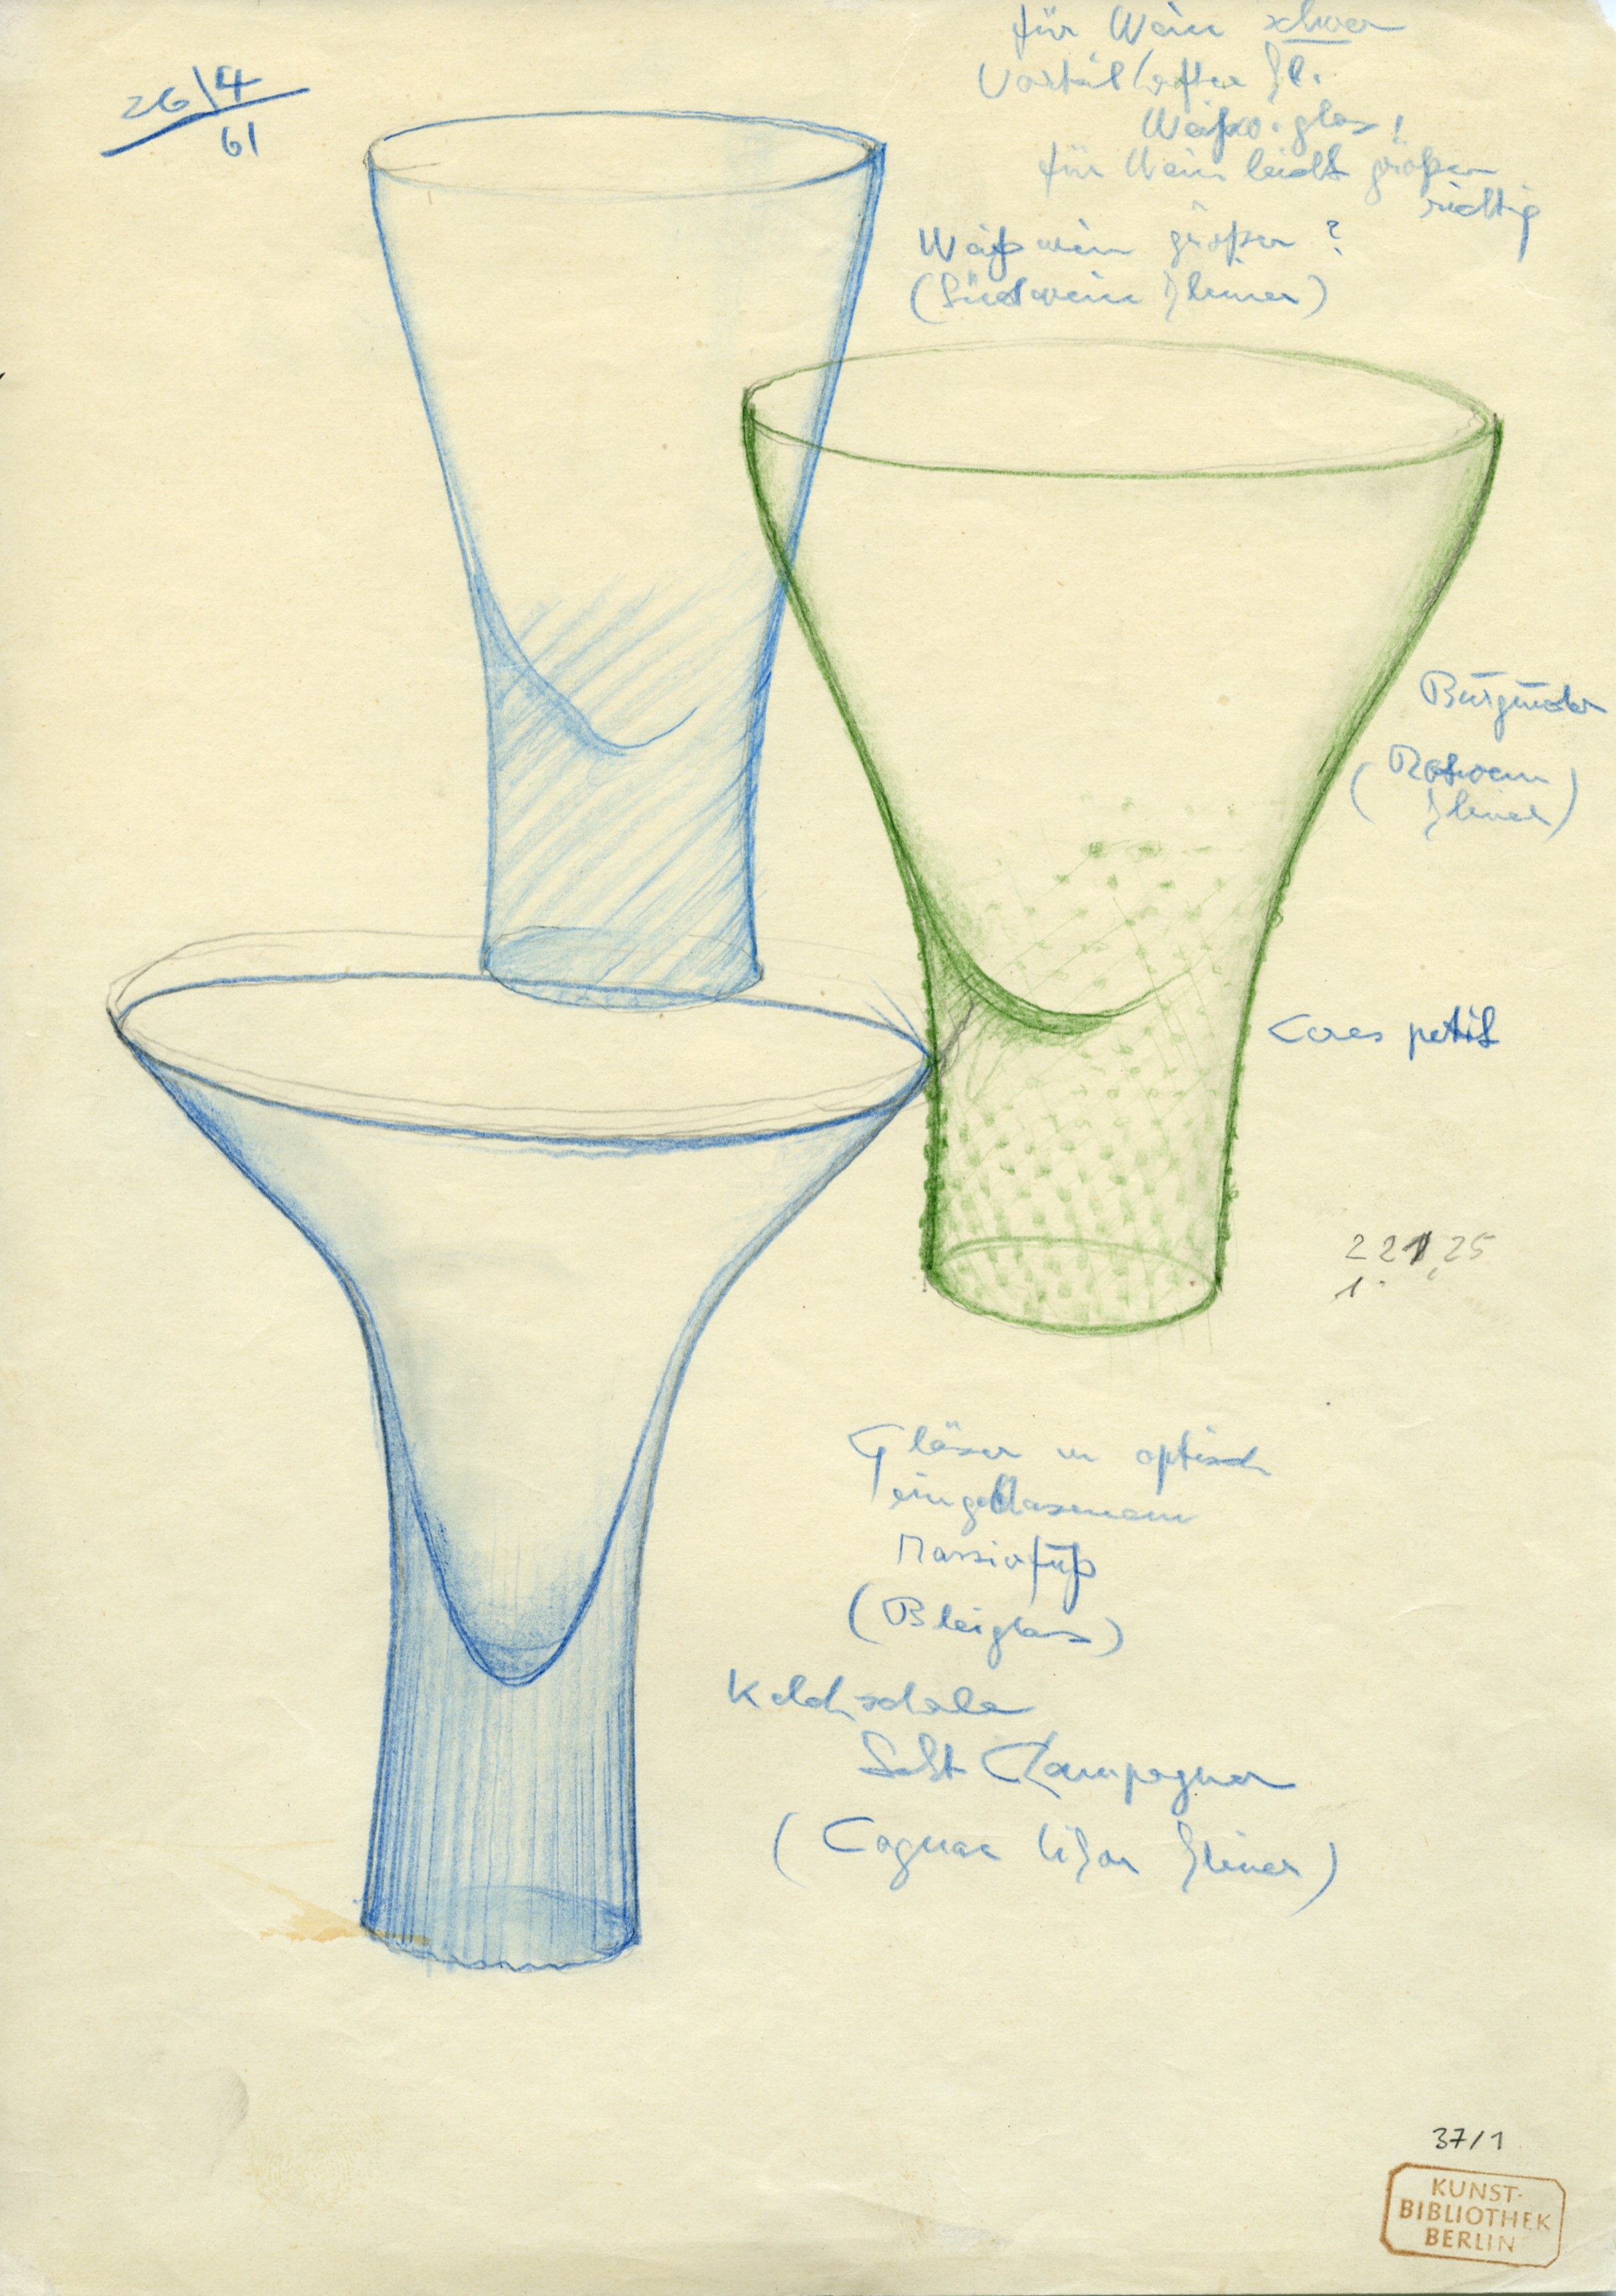 26/4
61
für Wein schwer
Vorteilhafter kl.
Weißw. glas!
für Wein leicht größer
richtig
Weißwein größer ?
(Südwein kleiner)
Burgunder
(Rotwein
kleiner)
petit
221,25
1.
Gläser m optisch
eingeblasenem
Massivfuß
(Bleiglas)
Kelchschale
Sekt Champagner
(Cognac Likör kleiner)
37/1
KUNST-
BIBLIOTHEK
BERLIN